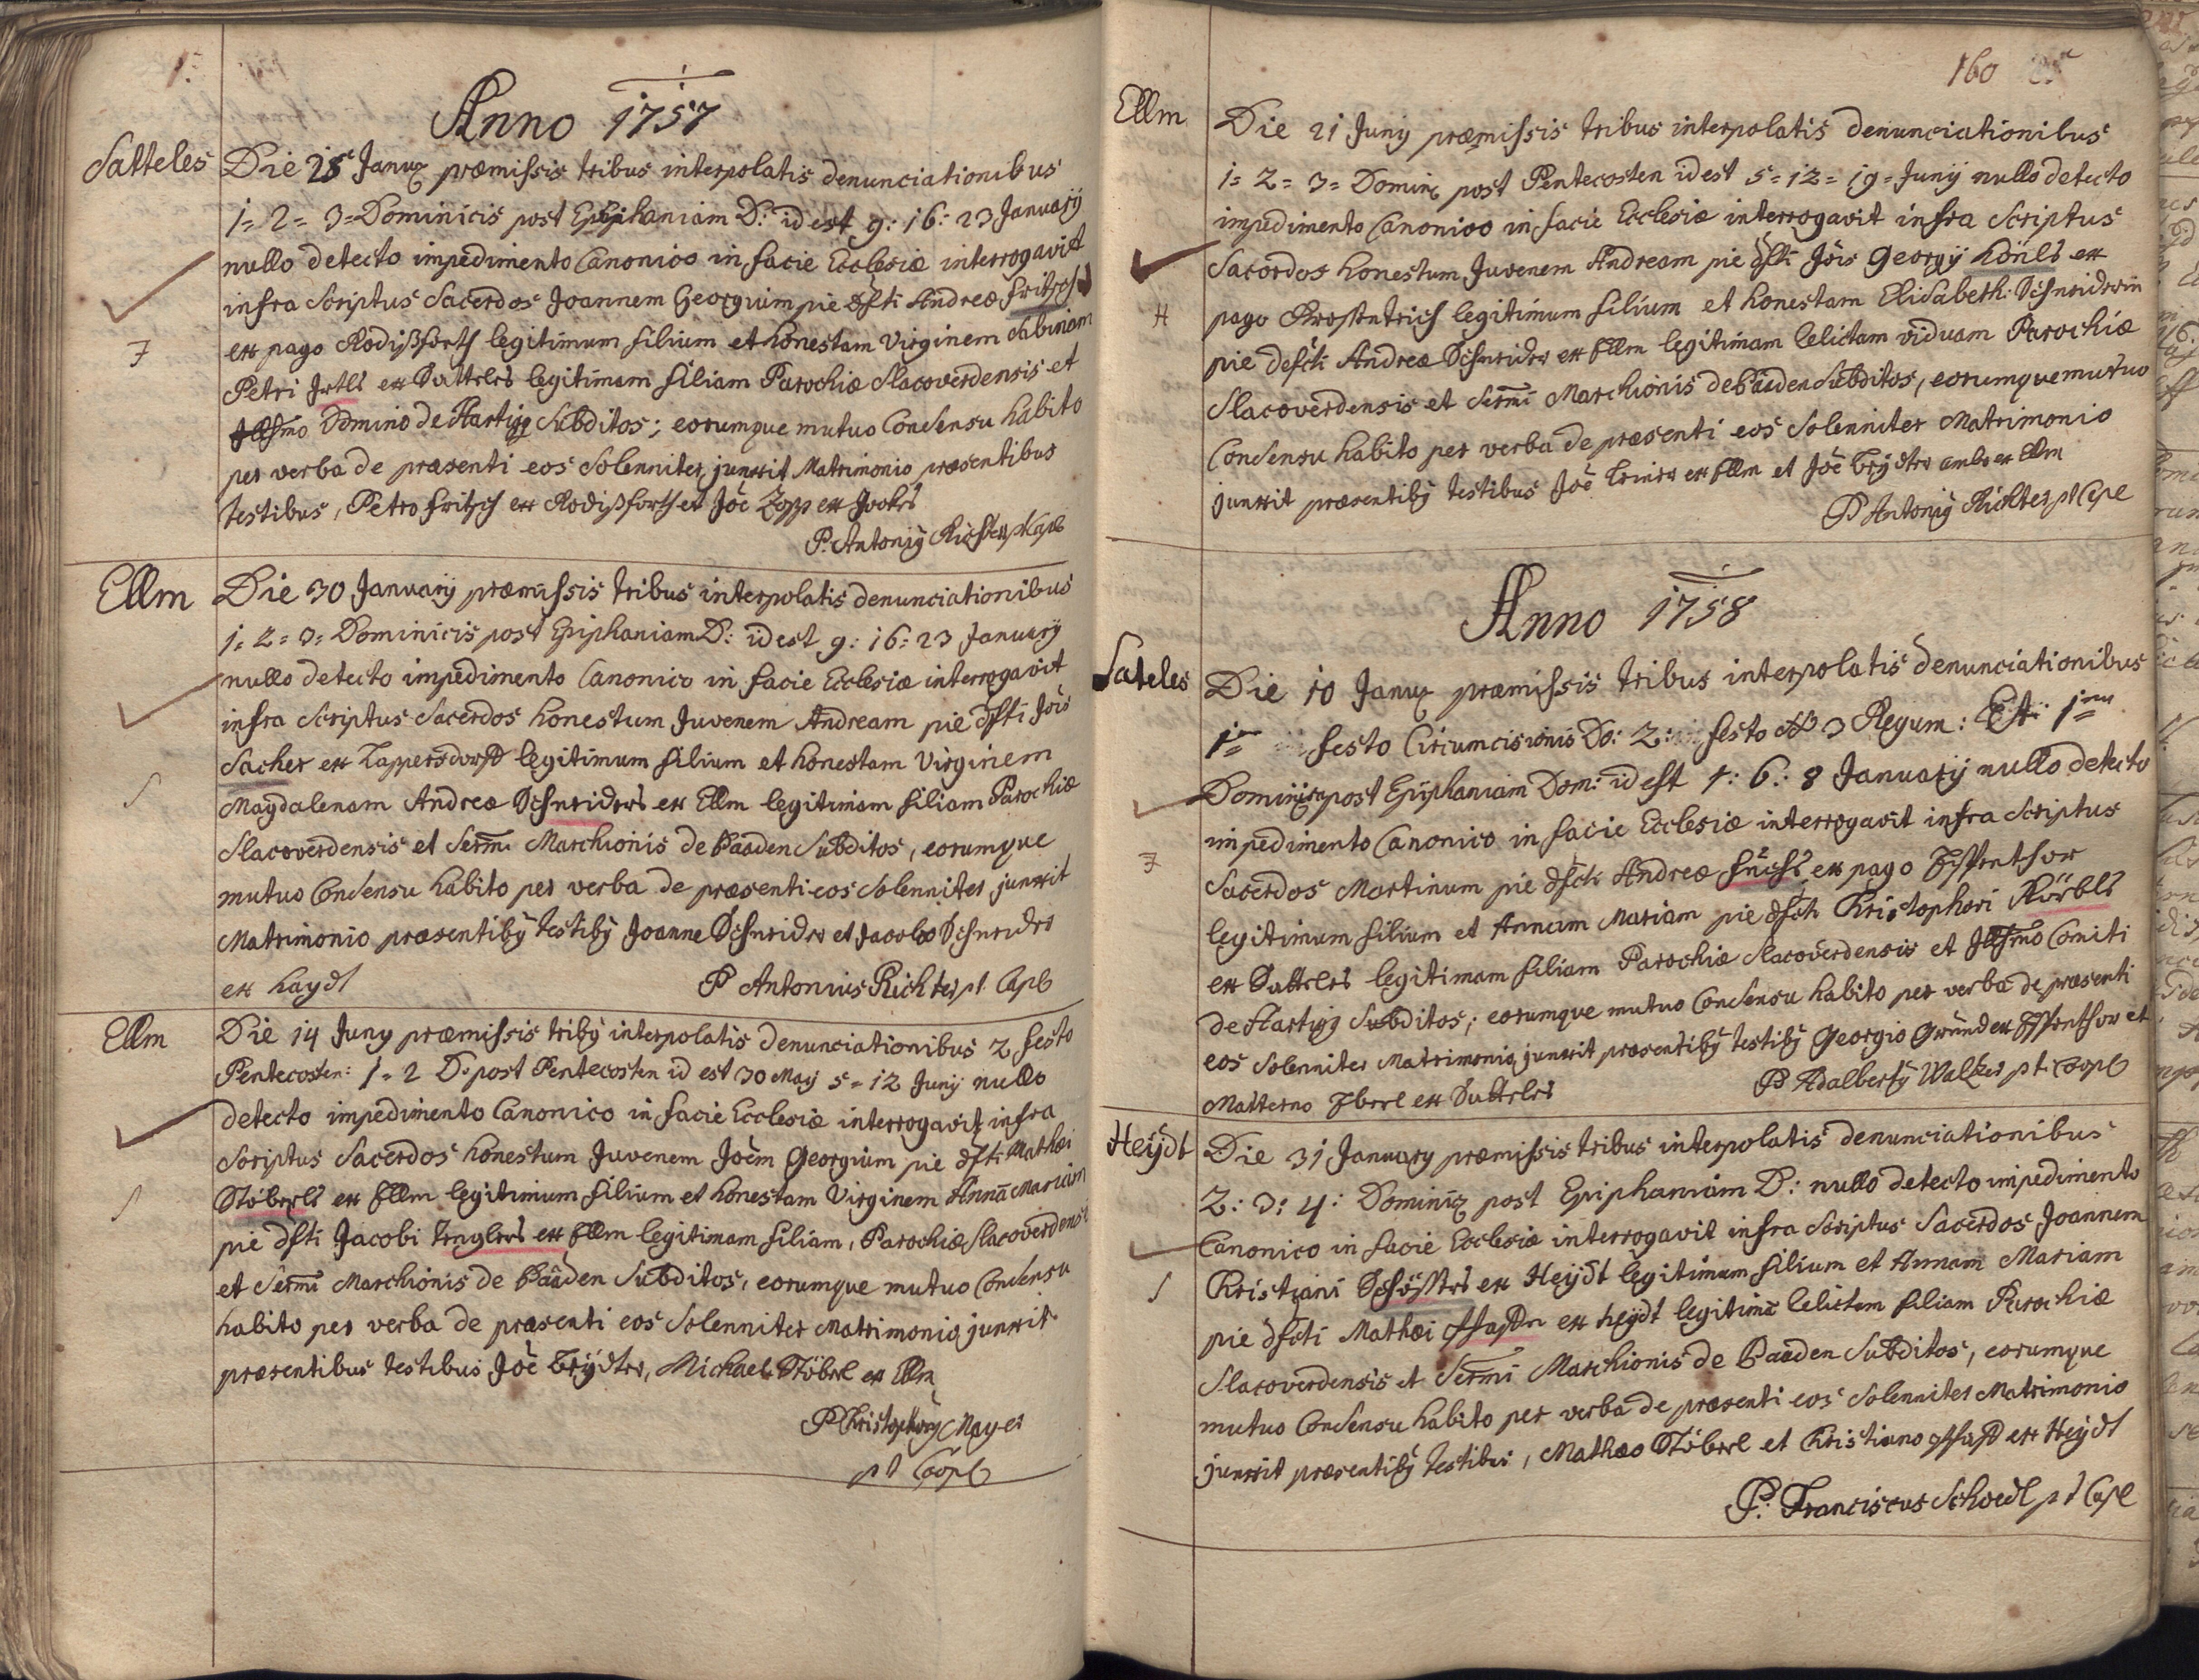 Anno 1757
Satteles
Die 25 Janu praemissis tribus interpolatis denunciationibus
1= 2= 3= Dominicis post Epiphaniam D: id est 9: 16: 23 January
nullo detecto impedimento Canonico in facie Ecclesiae interrogavit
infra Scriptus Sacerdos Joannem Georgium pie dfti Andreae Fritsch
ex pago Rodißforth legitimum filium et honestam Virginem Sabinam
Petri ex Satteles legitimam filiam Parochiae Slacoverdensis et
Illsmo Domino de Hartigg Subditos; eorumque mutuo Consensu habito
per verba de praesenti eos Solenniter junxit Matrimonio praesentibus
testibus, Petro Fritsch ex Rodißforth et Joe Zopp ex
P. Antonij Richter pt Capl
Ellm
Die 30 January praemissis tribus interpolatis denunciationibus
1= 2= 3= Dominicis post Epiphaniam D: id est 9: 16: 23 January
nullo detecto impedimento Canonico in facie Ecclesiae interrogavit
infra Scriptus Sacerdos honestum Juvenem Andream pie dfti Jois
Sacher ex Lappersdorff legitimum filium et honestam Virginem
Magdalenam Andreae Schneiders ex Ellm legitimam filiam Parochiae
Slacoverdensis et Sermi Marchionis de Baaden Subditos, eorumque
mutuo Consensu habito per verba de praesenti eos Solenniter junxit
Matrimonio praesentibg testibg Joanne Schneider et Jacobo Schneider
ex Haydt P Antonius Richter pt Capl
Ellm
Die 14 Juny praemissis tribg interpolatis denunciationibus 2 festo
Pentecosten: 1= 2 D. post Pentecosten id est 30 May 5= 12 Junij nullo
detecto impedimento Canonico in facie Ecclesiae interrogavit infra
Scriptus Sacerdos honestum Juvenem Joem Georgium pie dfti Mathaei
Stöberls ex Ellm legitimum filium et honestam Virginem Annā Mariam
pie dfti Jacobi Englers ex Ellm legitimam filiam, Parochiae Slacoverdensis
et Sermi Marchionis de Baaden Subditos, eorumque mutuo Consensu
habito per verba de praesenti eos Solenniter Matrimonio junxit
praesentibus testibus Joe, Michael Stöberl ex Ellm
P Christophorg Mayer
pt Coopl
160
Ellm
Die 21 Junij praemissis tribus interpolatis denunciationibus
1= 2= 3= Domini post Pentecosten id est 5= 12= 19= Junij nullo detecto
impedimento Canonico in facie Ecclesiae interrogavit infra Scriptus
Sacerdos honestum Juvenem Andream pie dfti Jois Georgij Hönls ex
pago legitimum filium et honestam Elisabeth Schneiderin
pie defcti Andreae Schneiders ex Ellm legitimam relictam viduam Parochiae
Slacoverdensis et Sermi Marchionis de Baaden Subditos, eorumque mutuo
Consensu habito per verba de praesenti eos Solenniter Matrimonio
junxit praesentibg testibus Joe ex Ellm et Joe ambo ex Ellm
P Antonij Richter pt Cpl
Anno 1758
Sateles
Die 10 Janu praemissis tribus interpolatis denunciationibus
1= festo Circumcisionis Do: 2: festo SS 3 Regum: Et 1ma
Dominica post Epiphaniam Dom: id est 1: 6: 8 January nullo detecto
impedimento Canonico in facie Ecclesiae interrogavit infra Scriptus
Sacerdos Martinum pie dfcti Andreae Füchs ex pago
legitimum filium et Annam Mariam pie dfcti Christophori Körbls
ex Satteles legitimam filiam Parochiae Slacoverdensis et Illsmo Comiti
de Hartigg Subditos; eorumque mutuo Consensu habito per verba de praesenti
eos Solenniter Matrimonio junxit praesentibg testibg Georgio Gründ ex et
Matterno Eberl ex Satteles P Adalbertg Walter pt. Coopl
Heÿdt
Die 31 January praemissis tribus interpolatis denunciationibus
2: 3: 4: Domini post Epiphaniam D: nullo detecto impedimento
Canonico in facie Ecclesiae interrogavit infra Scriptus Sacerdos Joannem
Christiani ex Heÿdt legitimum filium et Annam Mariam
pie dfcti Mathaei ex Heydt legitimā relictam filiam Parochiae
Slacoverdensis et Sermi Marchionis de Baaden Subditos, eorumque
mutuo Consensu habito per verba de praesenti eos Solenniter Matrimonio
junxit praesentibg testibus, Mathaeo Stöberl et Christiano ex Heÿdt
P. Franciscus Schoedl pt Capl